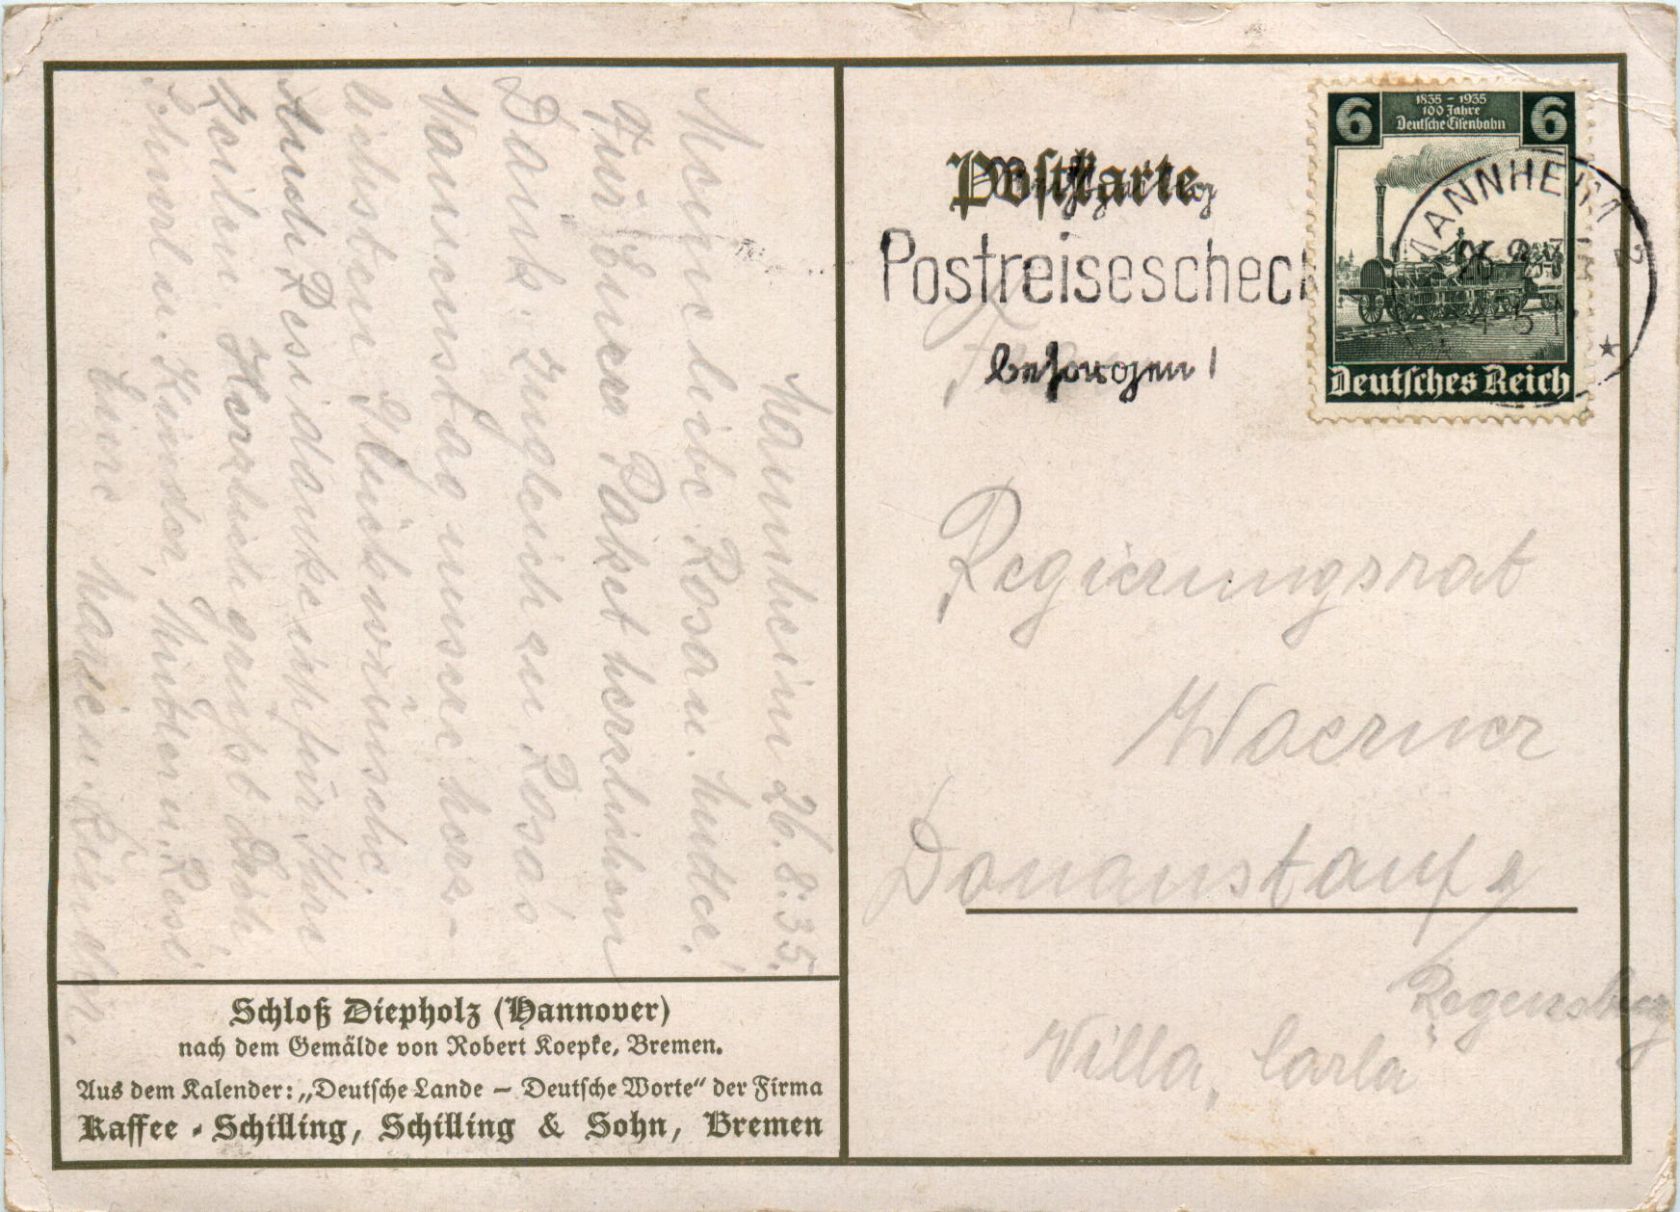 Mannheim 26.8.35.
Meine liebe Rosa u. Mutter!
Für Euer Paket herzlichen
Dank. zugleich zu Rosa's
Namenstag unsere herz-
lichsten Glückwünsche.
Auch Resi danke ich für Ihre
Zeilen. Herzlich grüßt Dich,
Kinder, Mutter u. Resi
Eure
Schloß Diepholz (Hannover)
nach dem Gemälde von Robert Koepke, Bremen.
Aus dem Kalender: „Deutsche Lande – Deutsche Worte“ der Firma
Kaffee-Schilling, Schilling & Sohn, Bremen
Postkarte
Postreisescheck
besorgen!
6 1835–1935 6
100 Jahre
Deutsche Eisenbahn
Deutsches Reich
MANNHEIM 2
26.8
Regierungsrat
Waerner
Donaustauf
Regensburg
Villa „Carla“